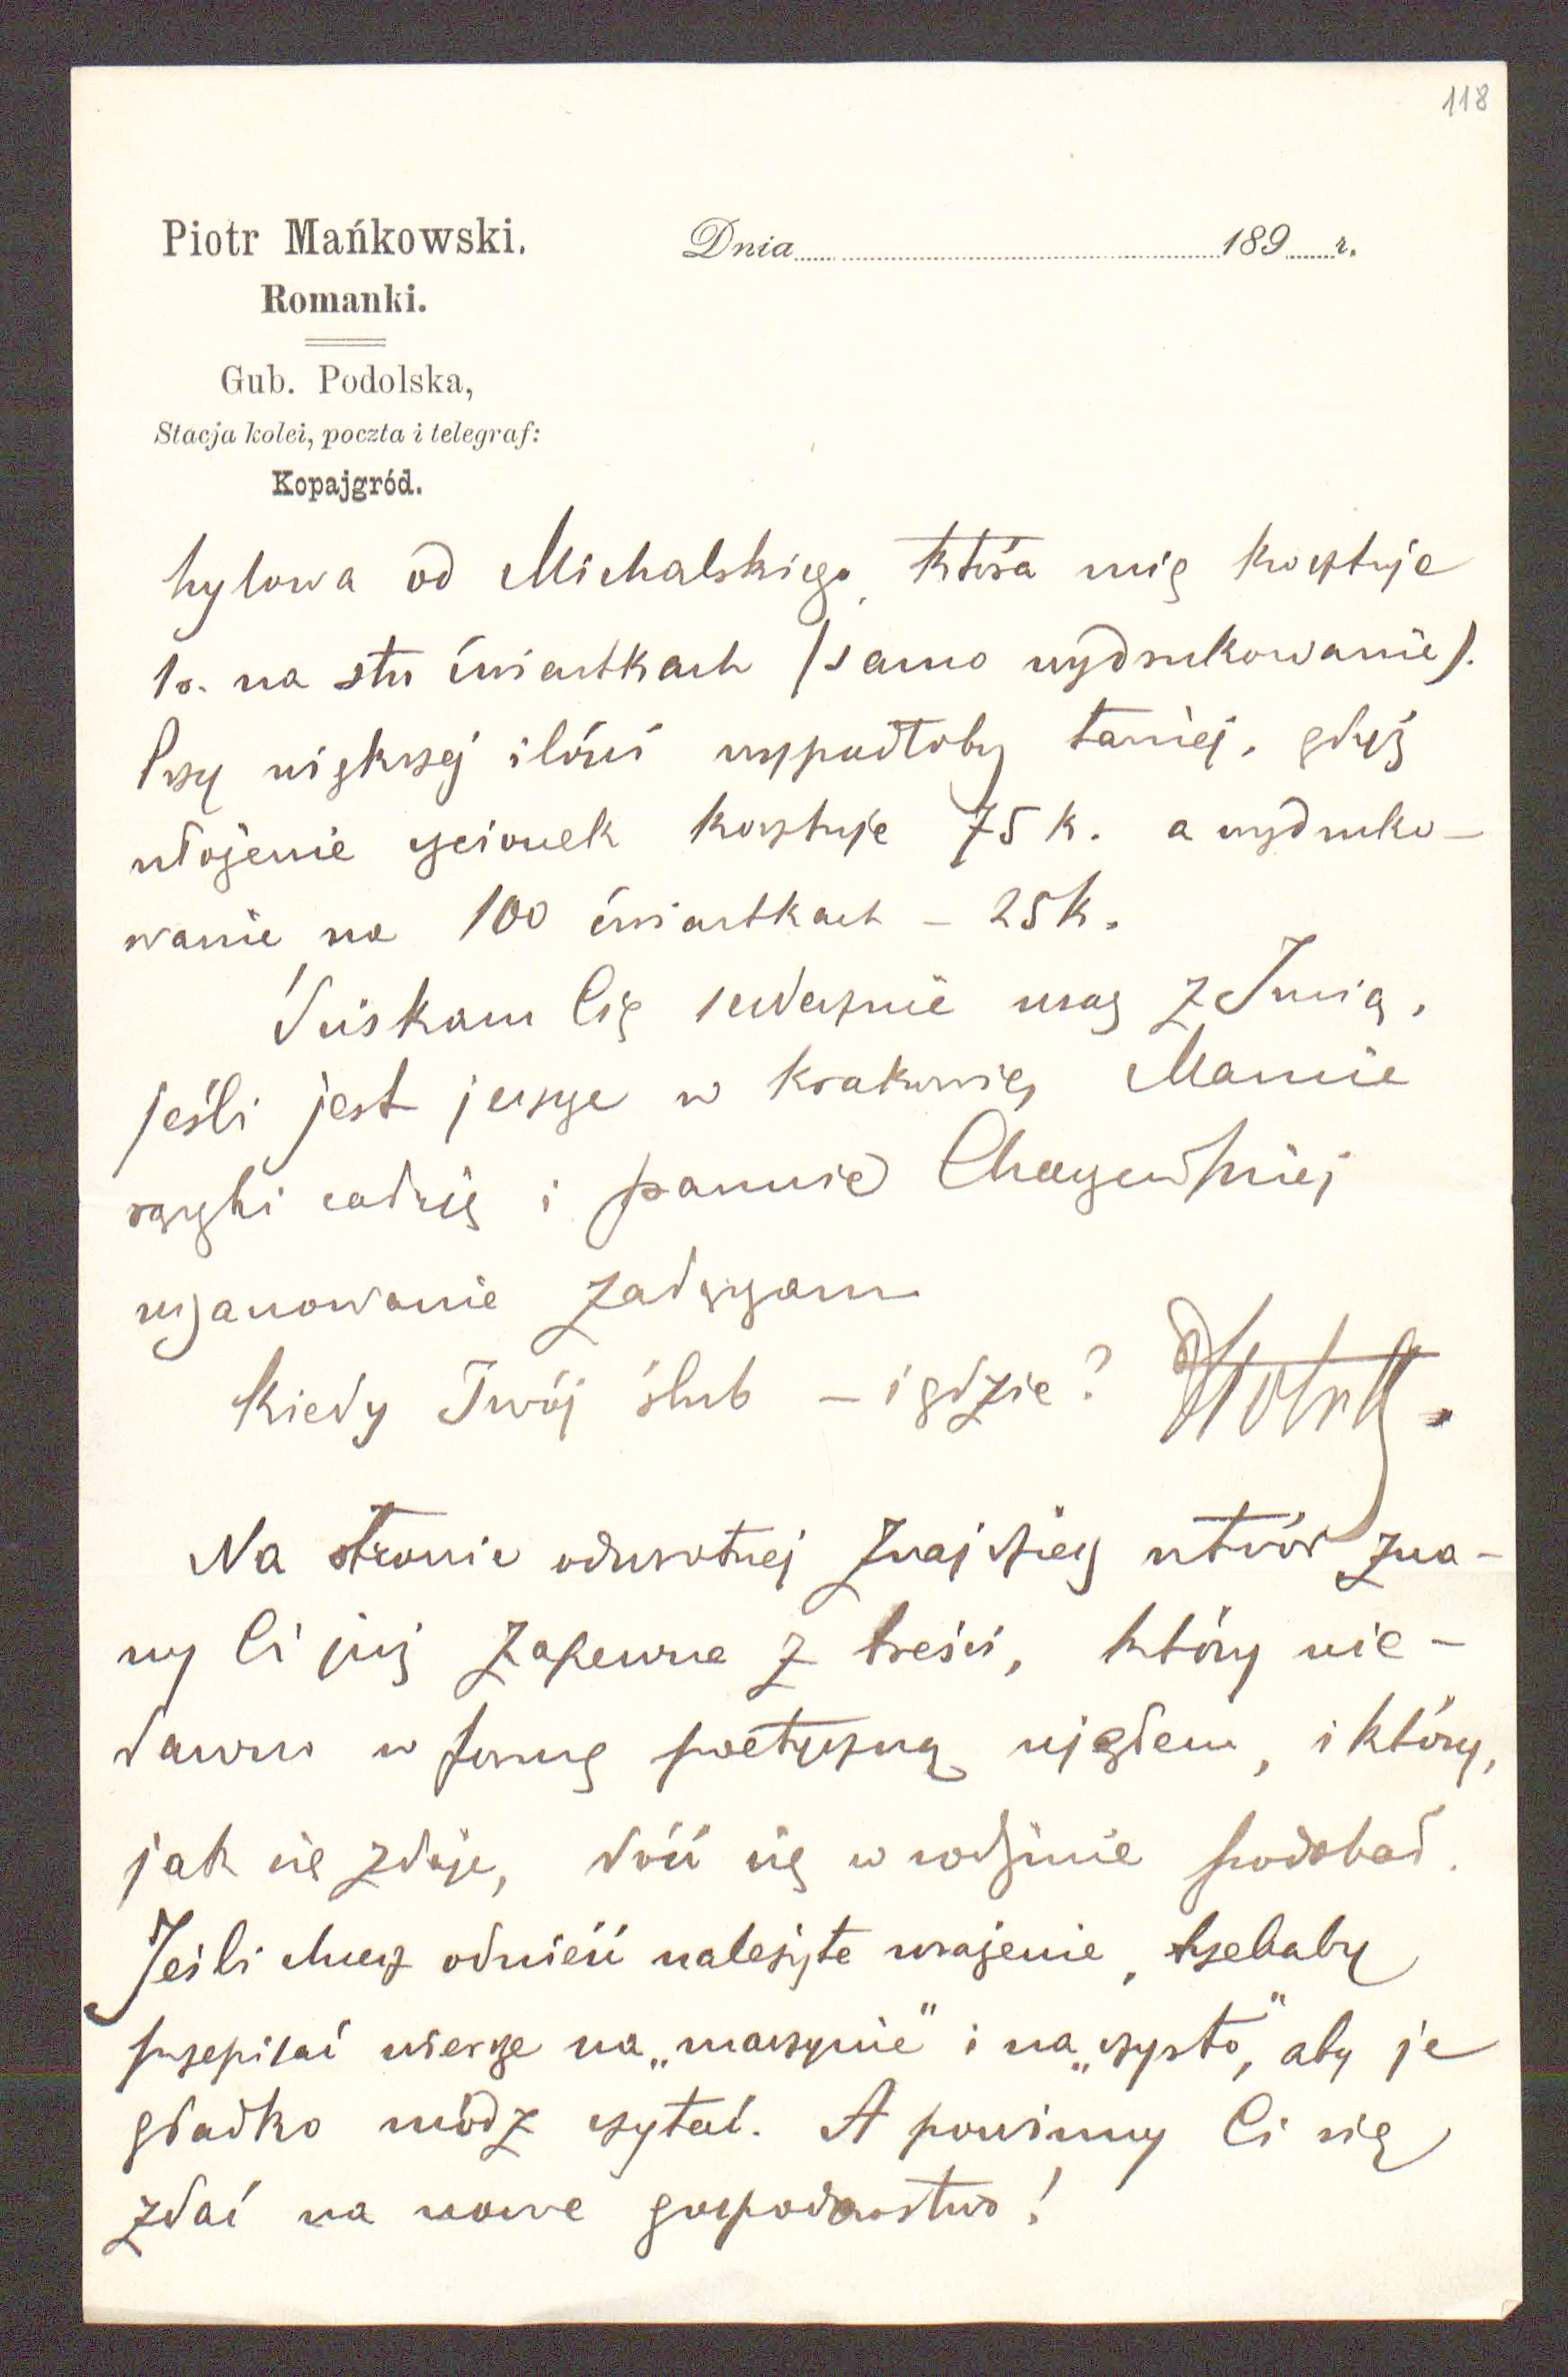 118
Piotr Mańkowski.
Romanki.
Gub. Podolska,
Stacja kolei, poczta i telegraf:
Kopajgród.
Dnia 189 r.
tylowa od Michalskiego, która mię kosztuje
1 r. na stu ćwiartkach (samo wydrukowanie).
Przy większej ilości wypadłoby taniej, gdyż
ułożenie czcionek kosztuje 75 k. a wydruko-
wanie na 100 ćwiartkach – 25 k.
Ściskam Cię serdecznie wraz z
jeśli jest jeszcze w Krakowie, Mamie
rączki całuję i pannie
uszanowanie załączam
Kiedy Twój ślub – i gdzie? Piotr
Na stronie odwrotnej znajdziesz utwór zna-
ny Ci już zapewne z treści, który nie-
dawno w formę poetyczną ująłem, i który,
jak się zdaje, dość się w rodzinie podobał.
Jeśli chcesz odnieść należyte wrażenie, trzebaby
przepisać wiersze na „maszynie" i na „czysto", aby je
gładko módz czytać. A powinny Ci się
zdać na nowe gospodarstwo!